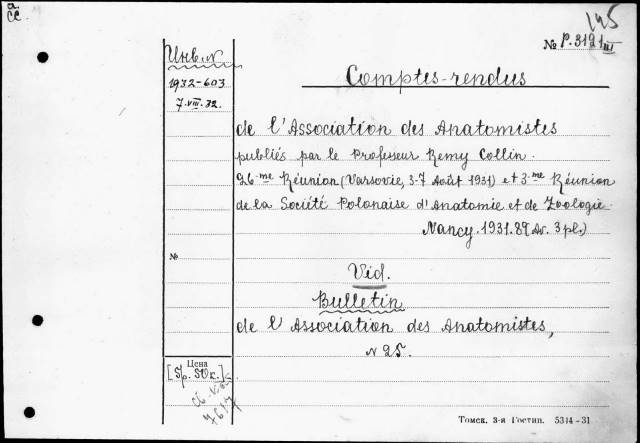 a
CC
145
№ P.3121 III
Инв. N
1932-603
7.VIII.32.
Comptes-rendus
de l'Association des Anatomistes
publiés par le Professeur Remy Collin.
26-me Réunion (Varsovie, 3-7 Août 1931) et 3-me Réunion
de la Société Polonaise d'Anatomie et de Zoologie
Nancy. 1931. 8º (av. 3 pl.)
№
Vid.
Bulletin
de l'Association des Anatomistes,
N 25.
Цена
7617
Томск. 3-я Гостип. 5344-31